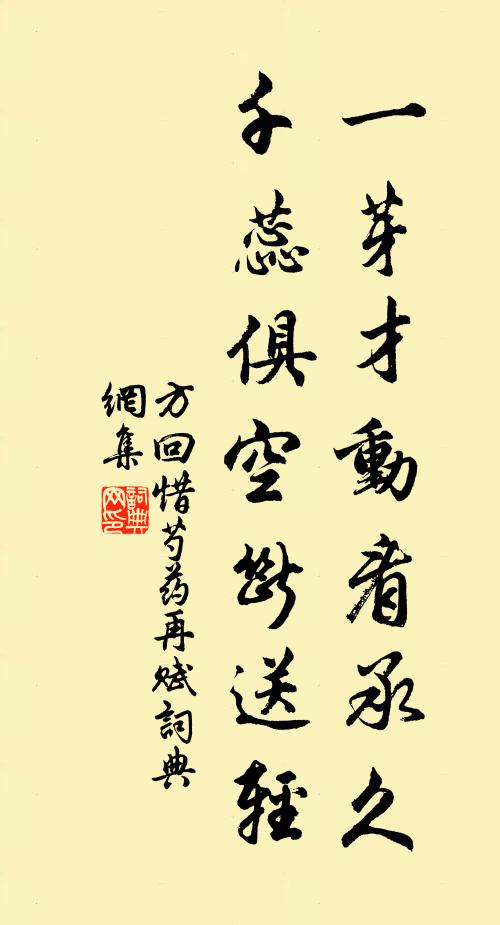 一芽才動看承久
千蕊俱空斷送輕
方回惜芍药再赋詞典
網集
詞典
网印